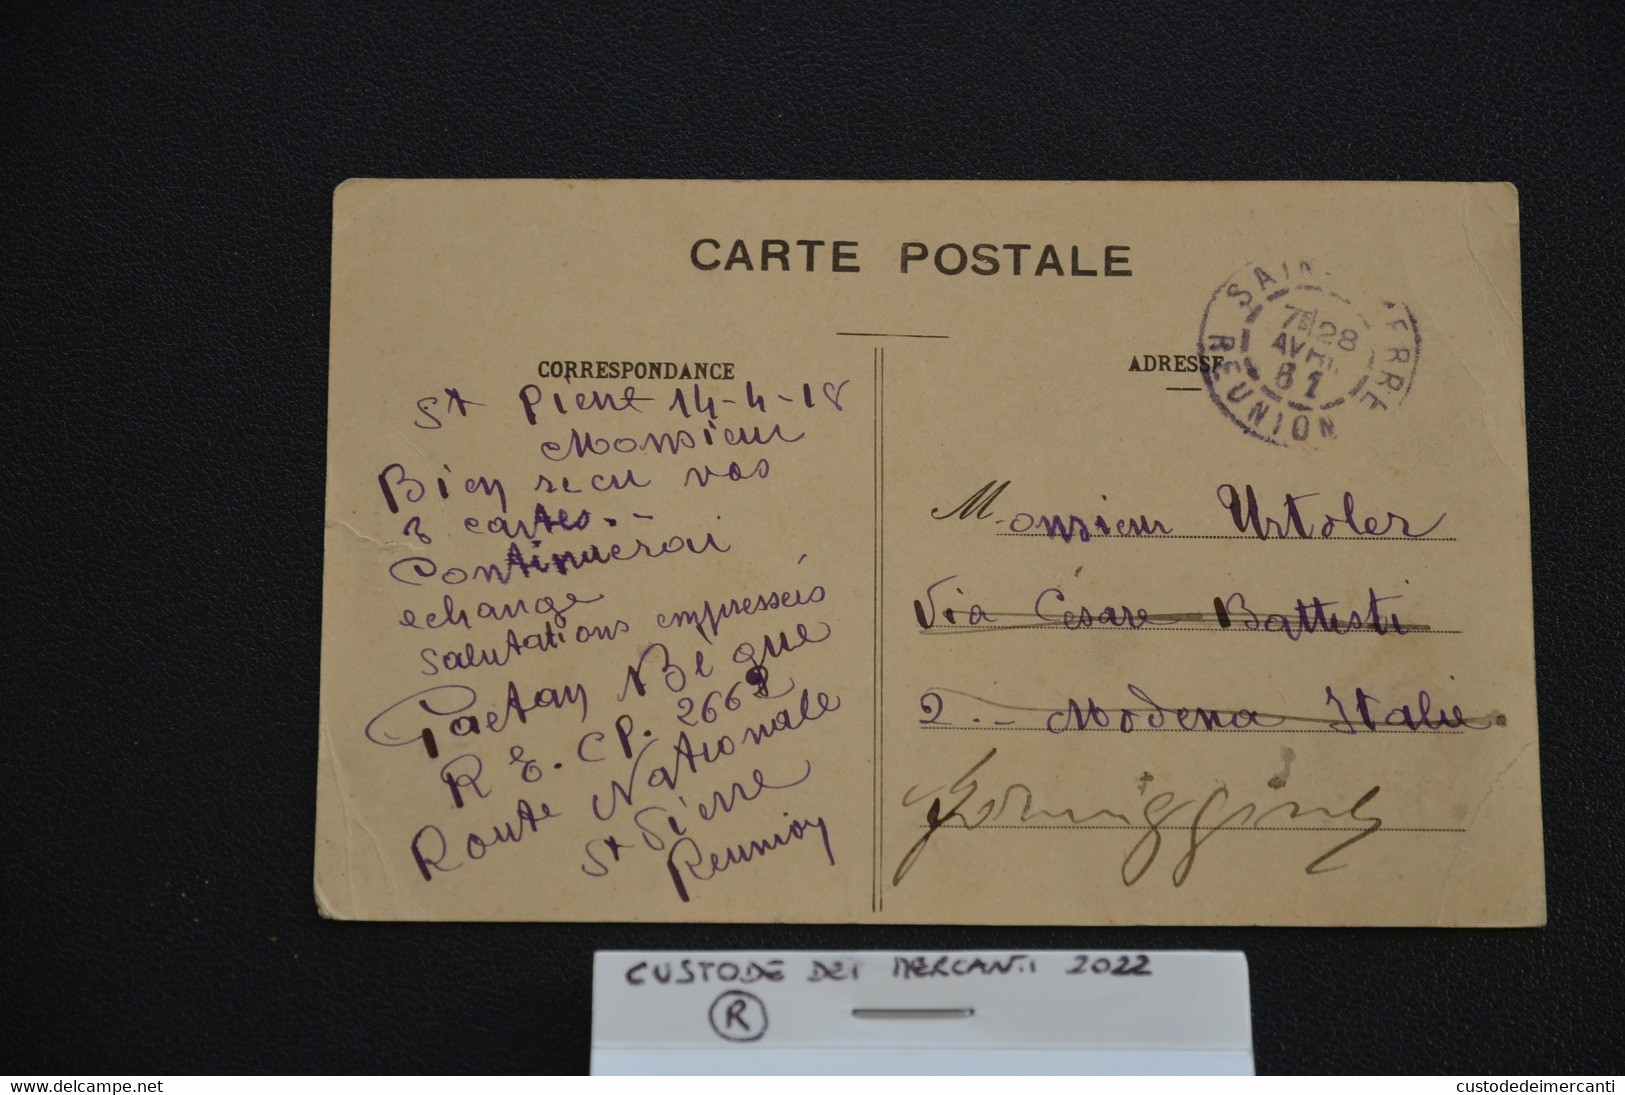 CARTE POSTALE
CORRESPONDANCE
ADRESSE
REUNION
28
AVRIL
St Pierre 14-4-18
Monsieur
Bien recu vos
2 cartes.-
Continuerai
echange
Salutations empresseés
Gaetan Bègue
R E. CP. 2662
Route Nationale
St Pierre
Reunion
Monsieur Urtoler
Via Césare Battisti
2.- Modena Italie
CUSTODE DEI MERCANTI 2022
R
delcampe.net
custodedeimercanti